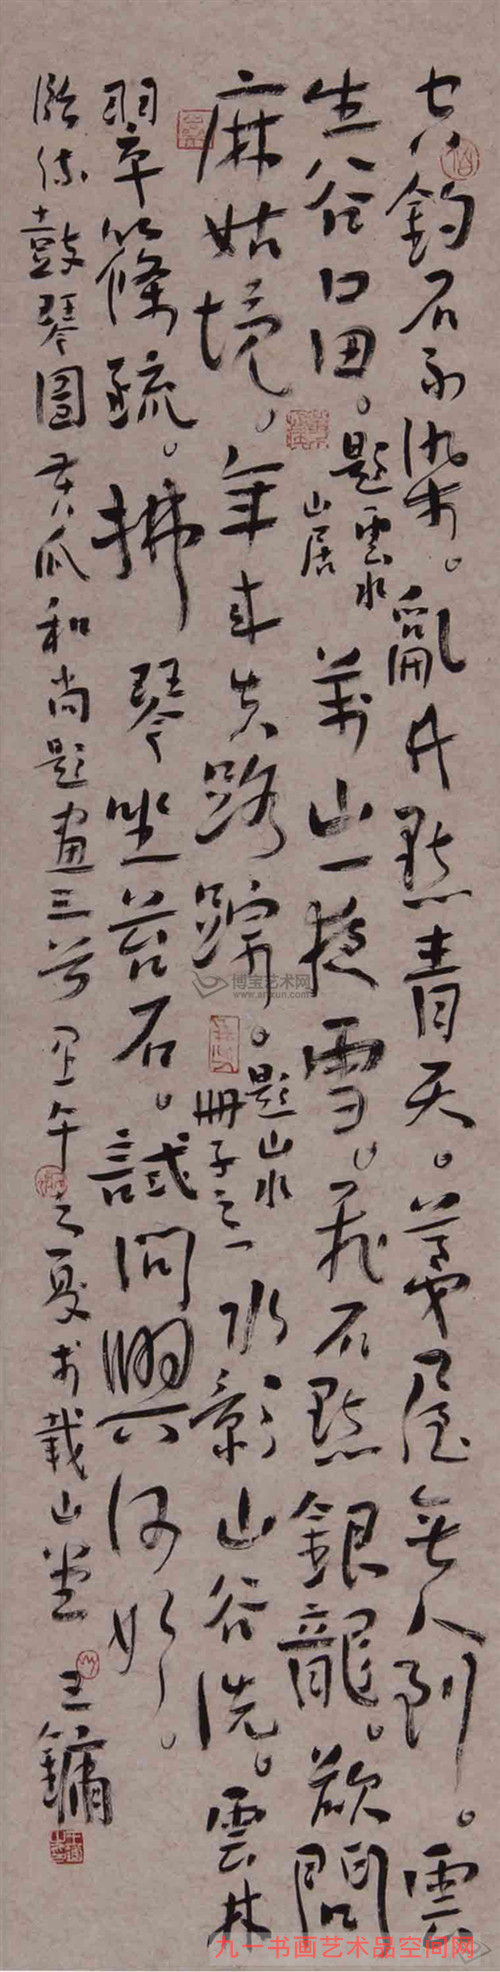 石不染。亂丹點青天。茅屋無人到。雲
生谷口田。題雲水山居 萬山一夜雪。飛石點銀龍。欲問
麻姑境。年來失路蹤。題山水冊子之一 水影山谷洗。雲林
翠篠疏。拂琴坐苔石。試問興何如。
臨流鼓琴圖 苦瓜和尚題畫三首 午之夏於載山堂 王鏞
博宝艺术网
www.artxun.com
九一书画艺术品空间网